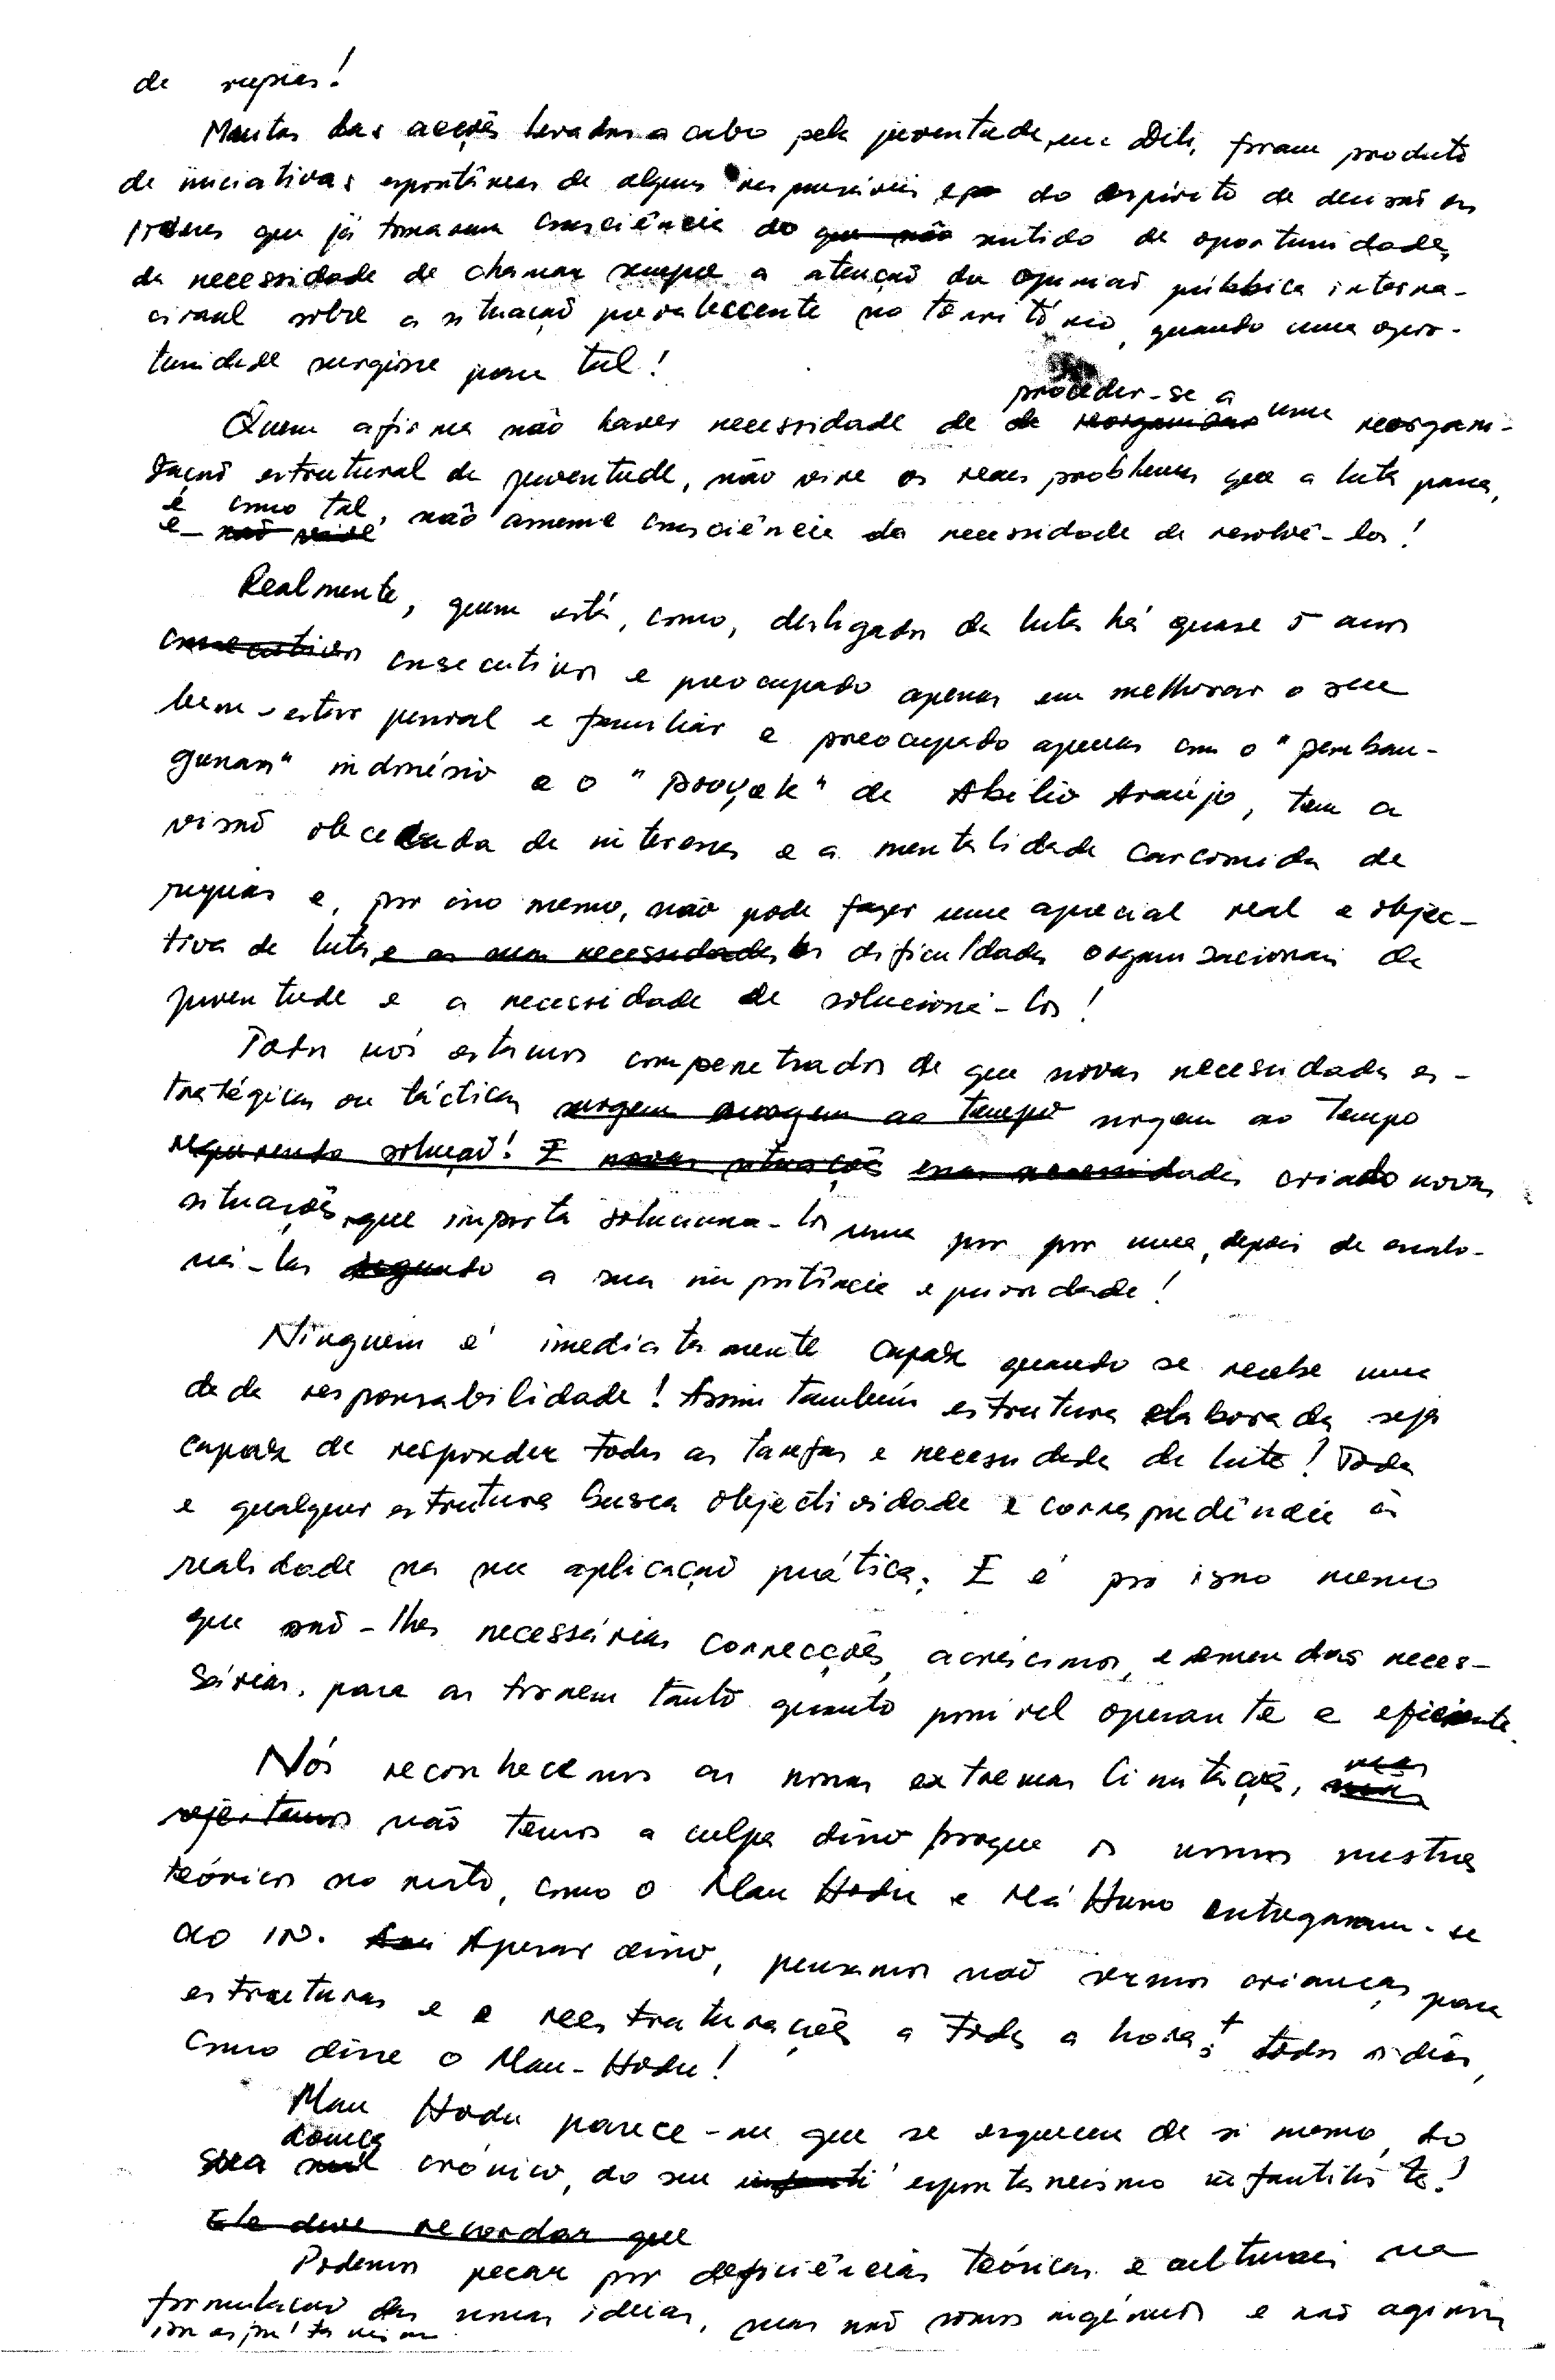 de rupias!
Muitas das acções levadas a cabo pela juventude, em Dili, foram produto
de iniciativas espontâneas de alguns responsáveis e do espírito de decisão os
jovens que já tomaram consciência do que não sentido de oportunidade,
da necessidade de chamar sempre a atenção da opinião pública interna-
cional sobre a situação prevalecente no território, quando uma opor-
tunidade surgisse para tal!
proceder-se a
Quem afirma não haver necessidade de de reorganizar uma reorgani-
zação estrutural da juventude, não vive os reais problemas que a luta passa,
e como tal,
e não vive não assume consciência da necessidade de resolvê-los!
Realmente, quem está, como, desligado da luta há quase 5 anos
consecutivos consecutivos e preocupado apenas em melhorar o seu
bem-estar pessoal e familiar e preocupado apenas com o "pemban-
gunam" indonésio e o "proyek" de Abílio Araújo, tem a
visão obcecada de interesses e a mentalidade carcomida de
rupias e, por isso mesmo, não pode fazer uma apreciação real e objec-
tiva da luta, e as suas necessidades as dificuldades organizacionais da
juventude e a necessidade de solucioná-los!
Todos nós estamos compenetrados de que novas necessidades es-
tratégicas ou tácticas surgem surgem ao tempo surgem ao tempo
requerendo solução! E novas situações essas necessidades criado novas
situações, que importa soluciona-los uma por por uma, depois de
a sua importância e prioridade!
Ninguém é imediatamente capaz quando se recebe uma
dada responsabilidade! Assim também estrutura elaborada seja
capaz de responder todas as tarefas e necessidade da luta! Toda
e qualquer estrutura busca objectividade e correspondência à
realidade na sua aplicação prática. E é por isso mesmo
que são-lhes necessárias correcções, acréscimos, e emendas neces-
sárias, para as tornem tanto quanto possível operante e eficiente.
Nós reconhecemos as nossas extremas limitações, mas
rejeitamos não temos a culpa disso porque os nossos mestres
teóricos no mato, como o Mau Hodu e Má Huno entregaram-se
ao IN. Apesar disso, pensamos não sermos crianças para
estruturas e e reestruturações a toda a hora: + todos os dias,
como disse o Mau-Hodu!
Mau Hodu parece-me que se esqueceu de si mesmo, do
doença
sua mal crónico, do seu infanti espontaneismo infantilista!
Ele deve recordar que
Podemos pecar por deficiências teóricas e culturais na
formulação das nossas ideias, mas não somos ingénuos e não agimos